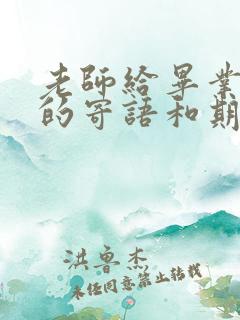 老師給畢業
的寄語和期
洪魯杰
未經同意禁止轉載